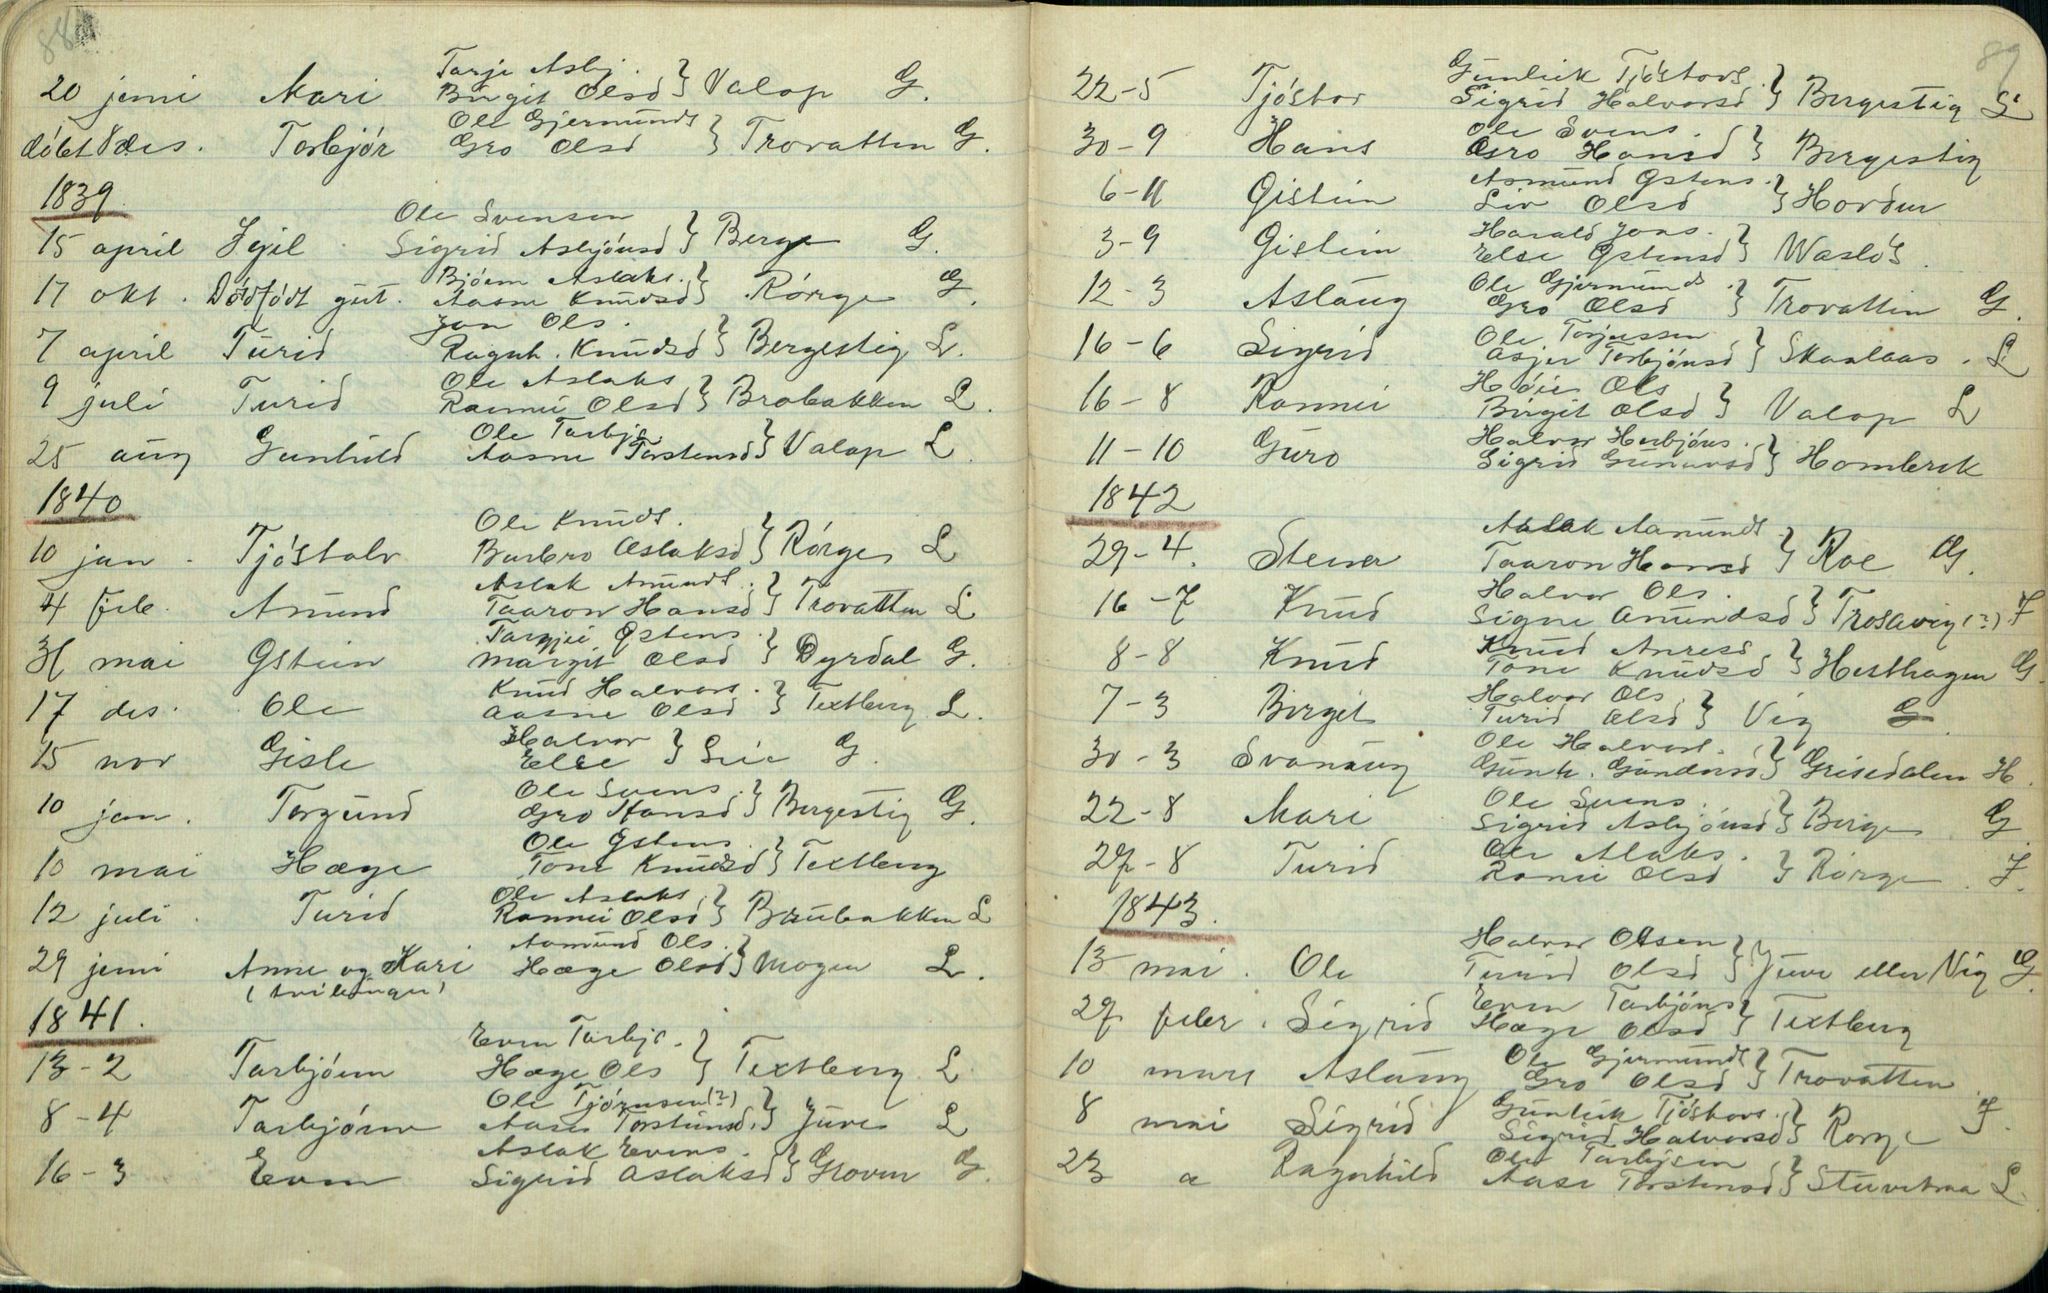 88
Tarje Asbj.
20 juni Mari Birgit Olsd } Valop G.
Ole Gjermunds
døbt 8 des. Torbjør Gro Olsd } Trovatten G.
1839
Ole Svensen
15 april Egil Sigrid Asbjónsd } Berge G.
Bjóern Aslaks.
17 okt. Dødfødt gut. Aasne Knudsd } Rórge G.
Jon Ols.
7 april Turid Ragnh. Knudsd } Bergestig L.
Ole Aslaks
9 juli Turid Rannei Olsd } Brobakken L.
Ole Tarbjø
25 aug Gunhild Aasne Torstensd } Valop L
1840
Ole Knuds.
10 jan. Tjóstolv Barbro Aslaksd } Rórge L
Aslak Amunds.
4 feb. Amund Taaron Hansd } Trovatten L
Targjei Østens.
31 mai Østein Margit Olsd } Dyrdal G.
Knud Halvors.
17 des. Ole Aasne Olsd } Textberg L.
Halvor
15 nov Gisle Else } Lie G.
Ole Svens.
10 jan. Torgund Gro Hansd } Bergestig G.
Ole Østens
10 mai Hæge Tone Knudsd } Textberg
Ole Aslaks.
12 juli. Turid Rannei Olsd } Brubakken L
Aamund Ols.
29 juni Anne og Kari Hæge Olsd } Mogen L.
(tvilinger)
1841.
Even Tarbjø.
13-2 Tarbjóen Hæge Ols } Textberg L
Ole Tjórnsen(?)
8-4 Tarbjórn Aase Torstensd. } Juve L
Aslak Evens.
16-3 Even Sigrid Aslaksd } Groven G.
89
Gunleik Tjóstovs.
22-5 Tjóstov Sigrid Halvorsd } Bergestig L
Ole Svens.
30-9 Hans Gro Hansd } Bergestig
Asmund Østens.
6-11 Øistein Liv Olsd } Hovden
Harald Jons.
3-9 Øistein Else Østensd } Waslós.
Ole Gjermunds.
12-3 Aslaug Gro Olsd } Trovatten G.
Ole Torjussen
16-6 Sigrid Asjer Torbjónsd } Skaalaas. L
Hóie Ols
16-8 Rannei Birgit Olsd } Valop L
Halvor Herbjóns.
11-10 Guro Sigrid Gunarsd } Hombrek
1842
Aslak Aamunds.
29-4. Steiner Taaron Hansd } Roe G.
Halvor Ols.
16-7 Knud Signe Amundsd } Trosavig(?) F
Knud Anresd
8-8 Knud Tone Knudsd } Hesthagen G.
Halvor Ols.
7-3 Birgit Turid Olsd } Vig G
Ole Halvors.
30-3 Svanaug Gunh. Gundersd } Grisedalen H.
Ole Svens.
22-8 Mari Sigrid Asbjónsd } Berge G
Ole Alaks.
27-8 Turid Ranei Olsd } Rórge. F.
1843.
Halvor Olsen
13 mai. Ole Turid Olsd } Juve eller Vig G.
Even Tarbjóns
27 febr. Sigrid Hæge Olsd } Textberg
Ole Gjermunds
10 mars Aslaug Gro Olsd } Trovatten
Gunleik Tjóstovs.
8 mai Sigrid Sigrid Halvorsd } Rorge F.
Ole Tarbjøen
23 " Ragnhild Aase Torstensd } L.